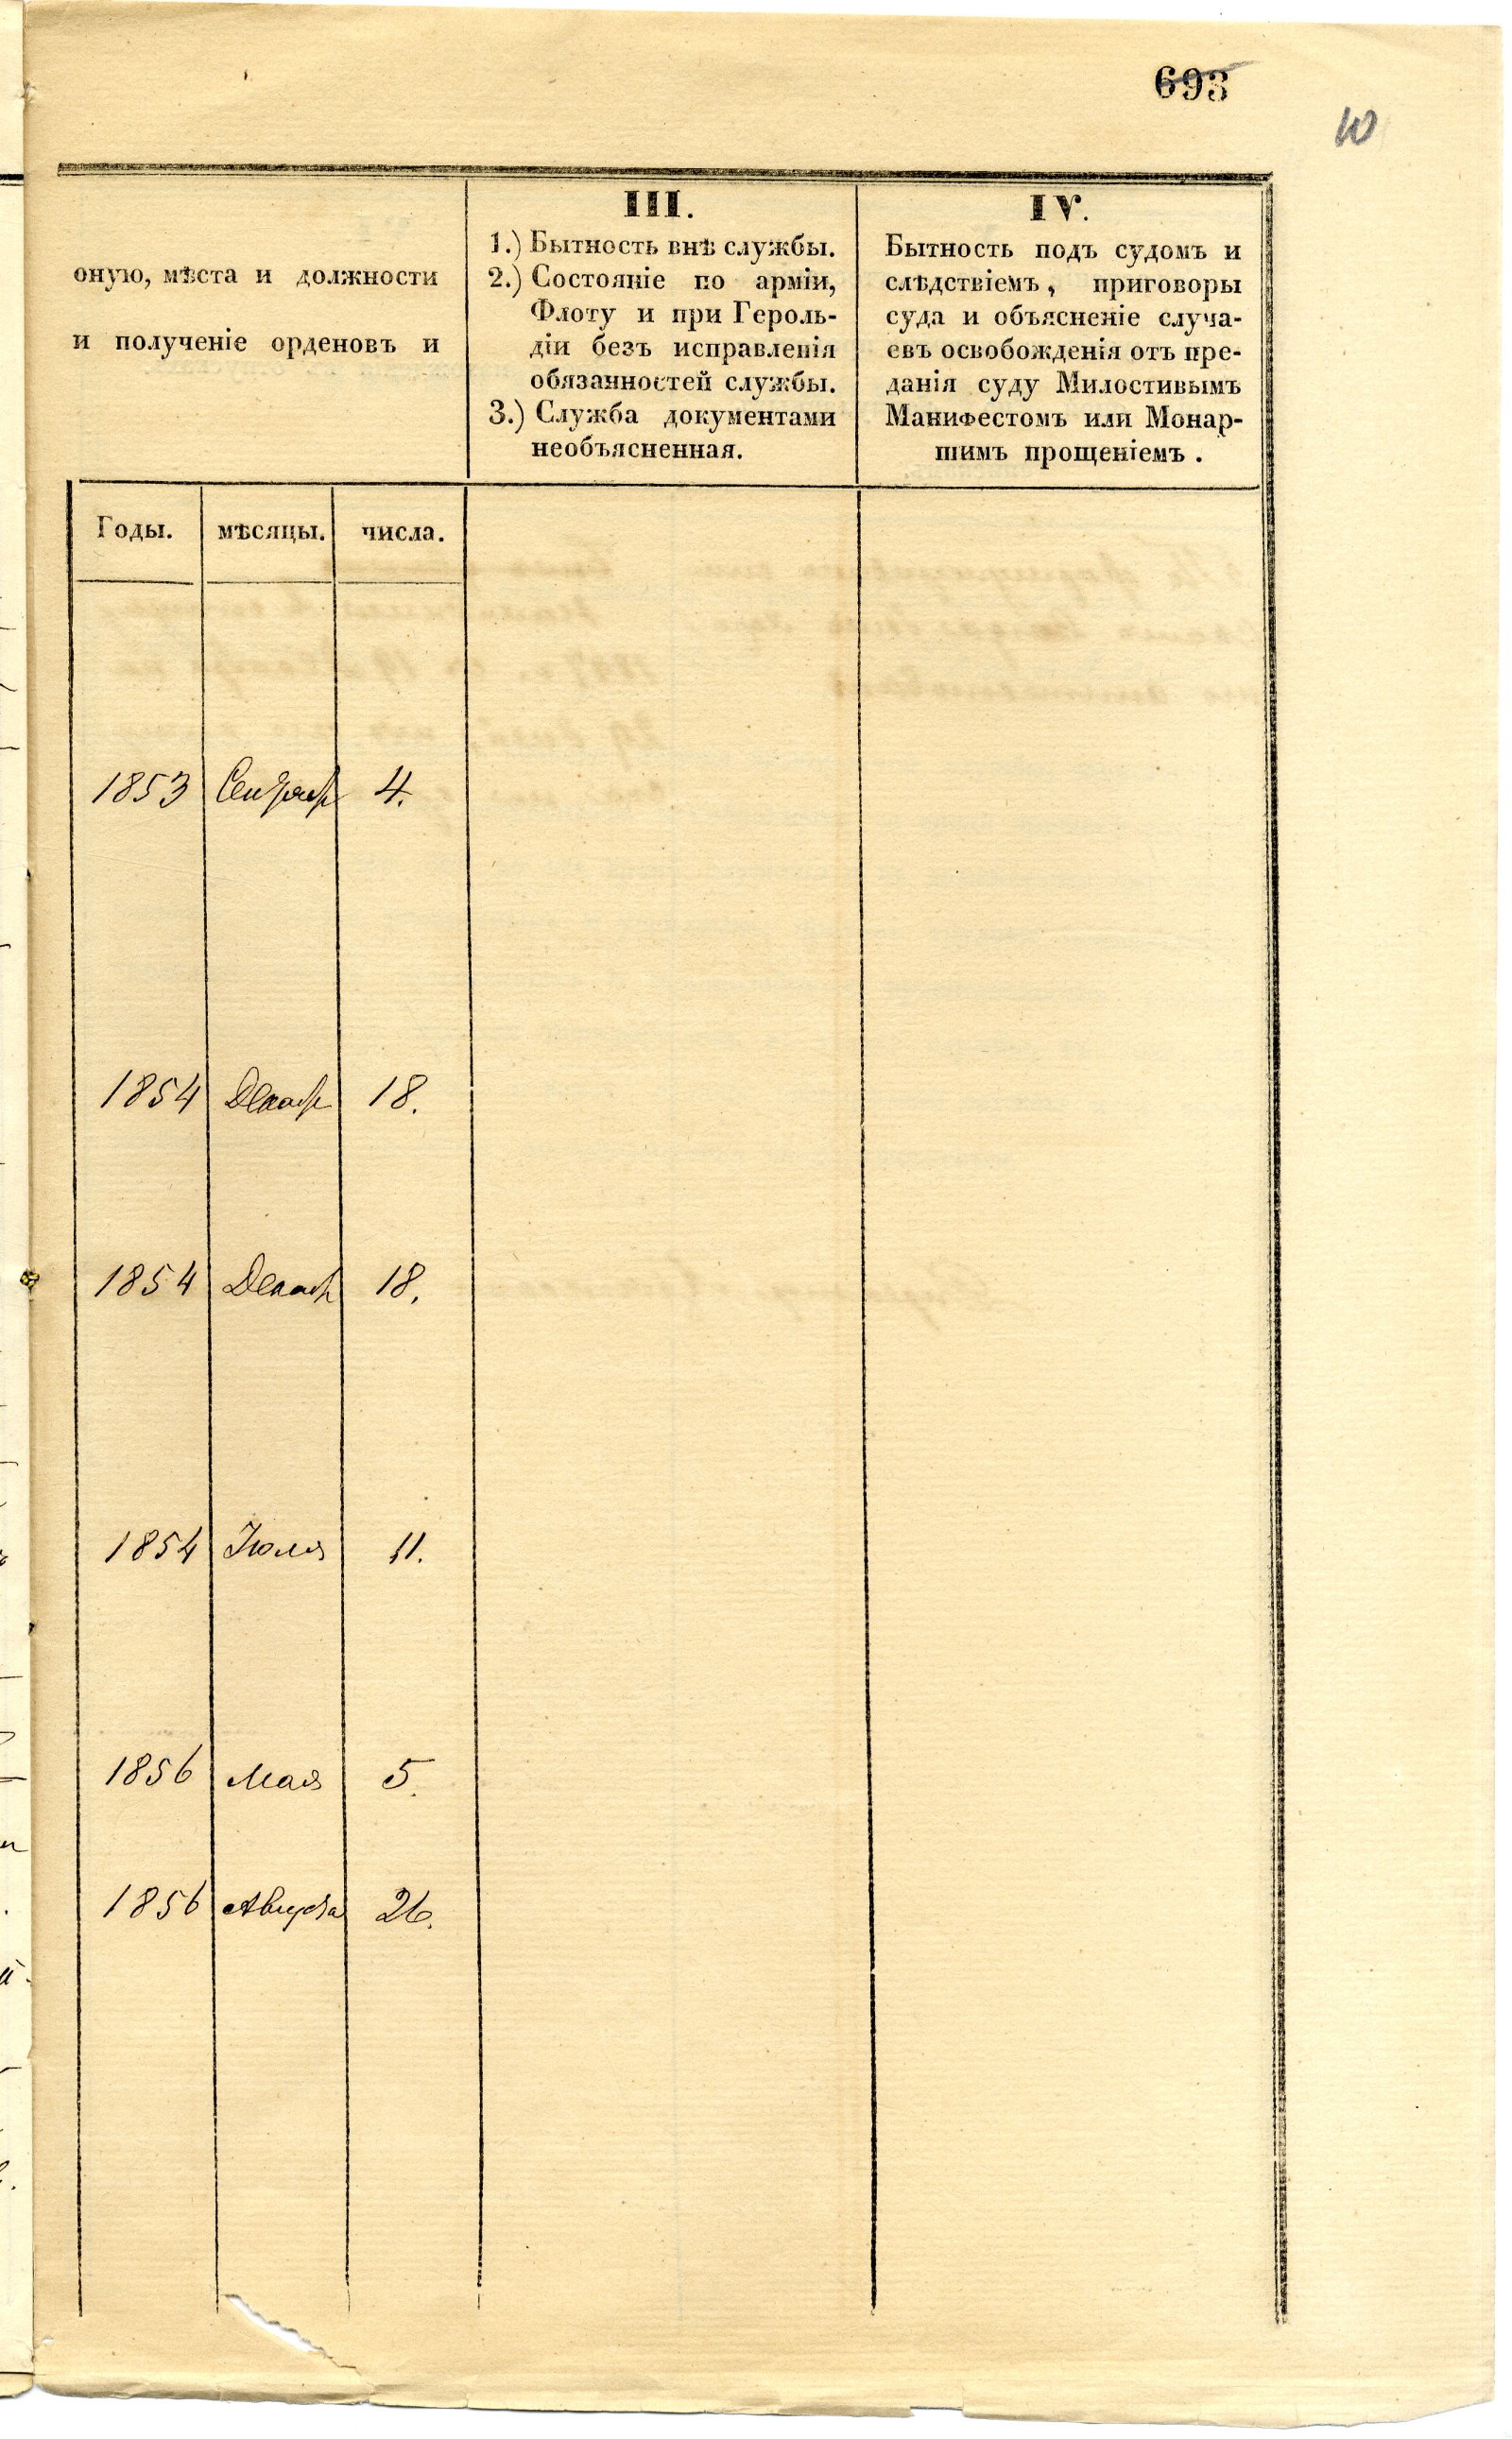 693
10
оную, мѣста и должности
и полученіе орденовъ и
III.
1.) Бытность внѣ службы.
2.) Состояніе по арміи,
Флоту и при Героль-
діи безъ исправленія
обязанностей службы.
3.) Служба документами
необъясненная.
IV.
Бытность подъ судомъ и
слѣдствіемъ, приговоры
суда и объясненіе случа-
евъ освобожденія отъ пре-
данія суду Милостивымъ
Манифестомъ или Монар-
шимъ прощеніемъ.
Годы. мѣсяцы. числа.
1853 Сентябр 4.
1854 Декабр 18.
1854 Декабр 18.
1854 Іюля 11.
1856 Мая 5.
1856 Августа 26.